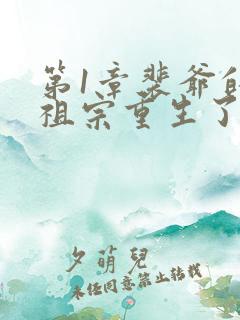 第1章裴爷的
祖宗重生了
夕萌兒
未经同意禁止转载